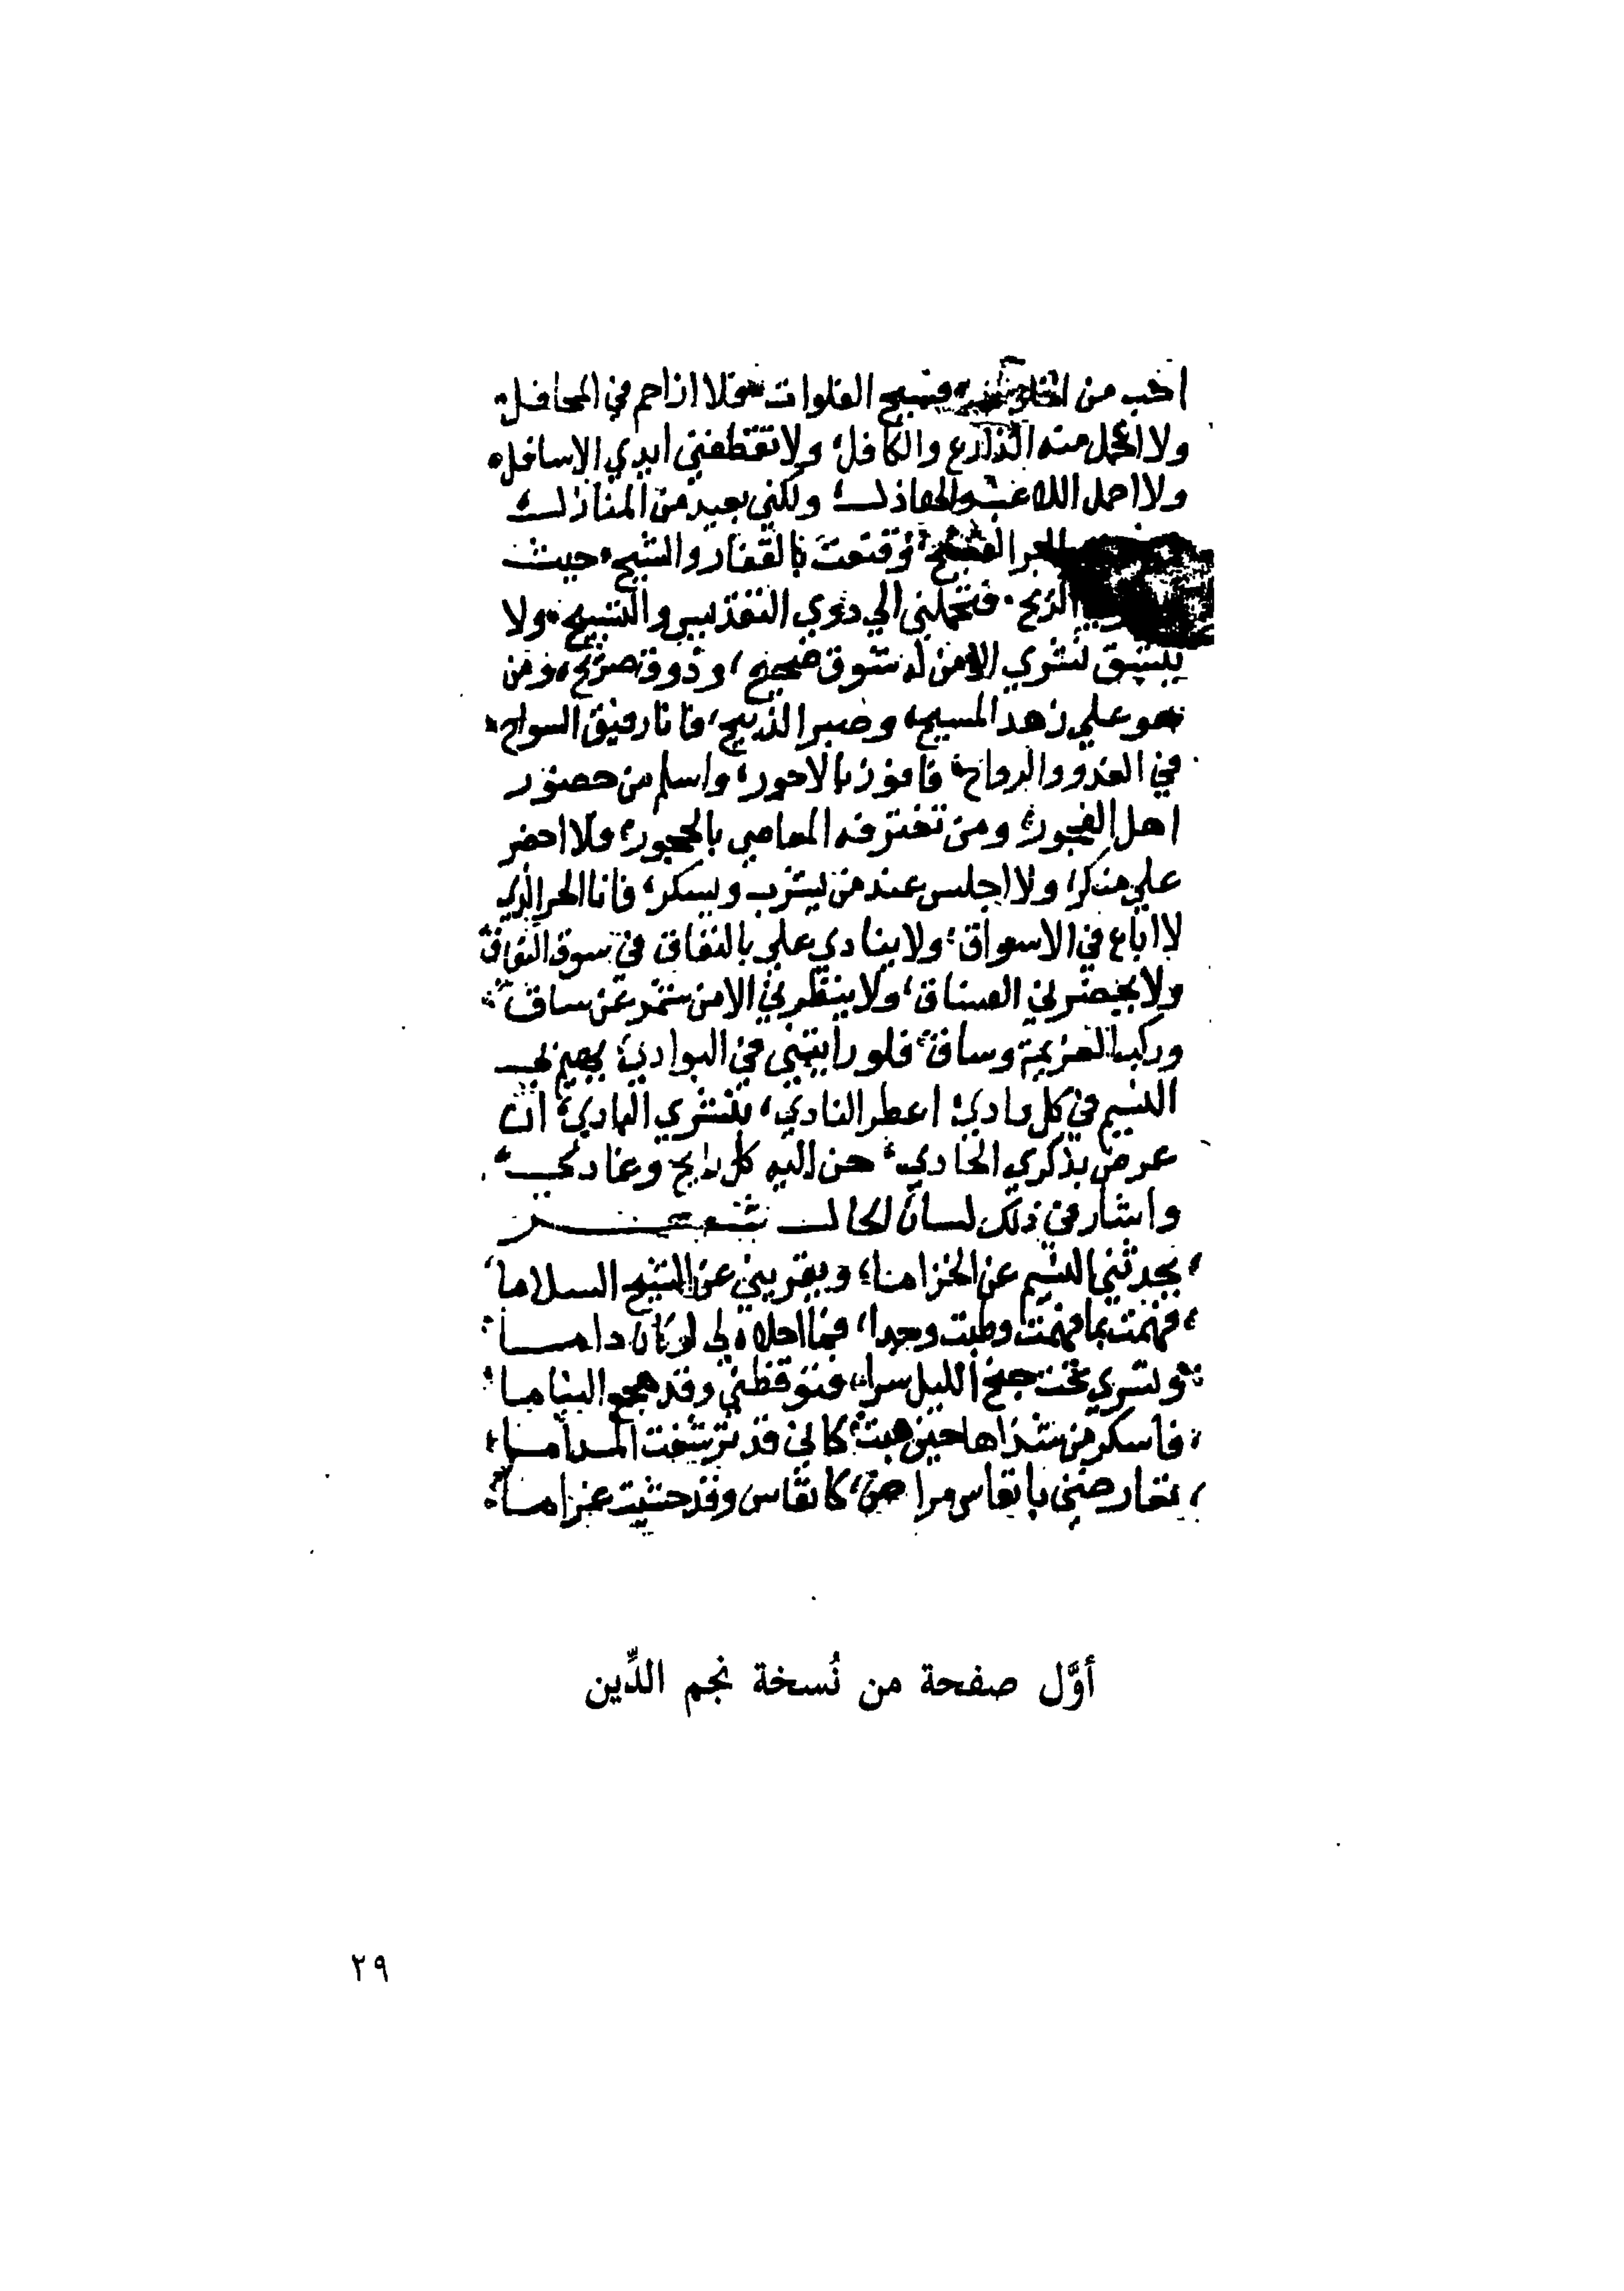 احب من ... فسيح الفلوات فلا ازاحم في المحافل
ولا ... منه الذارع والكافل ولا تقتطفني ايدي الاسافل
ولا احمل اللاعب والهاذل ولكني بعيد من المنازل
... الفسيح وقنعت بالقفار والشيح حيث
... الريح فتحملني الي ذوي التقديس والتسبيح ولا
ينشق نشري الا من له شوق صحيح وذوق صريح ومن
هو علي زهد المسيح وصبر الذبيح فانا رفيق السواح
في الغدو والرواح فافوز بالاجور واسلم من حضور
اهل الفجور ومن تقترفه المعاصي بالجهور فلا احضر
علي منكر ولا اجلس عند من يشرب ويسكر فانا الحر الذي
لا اباع في الاسواق ولا ينادي علي بالنفاق في سوق النفاق
ولا يحضرني الفساق ولا ينظرني الا من شمر عن ساق
وركب العزيمة وساق فلو رايتني في البوادي يهيم بي
النسيم في كل وادي اعطر النادي بنشري البادي ان
عرض بذكري الحادي حن اليه كل رايح وغادي
واشار في ذلك لسان الحال شعر
يحدثني النسيم عن الخزاما ويقريني عن الشيح السلاما
فهمت بما فهمت وطبت وجدا فما احلاه لي لو كان داما
وتسري تحت جنح الليل سرا فتوقظني وقد هجع النياما
فاسكر من شذاها حين هبت كاني قد ترشفت المداما
تعارضني بانفاس مراض كانفاس وقد حشيت غراما
أوَّل صفحة من نُسخة نجم الدِّين
٢٩